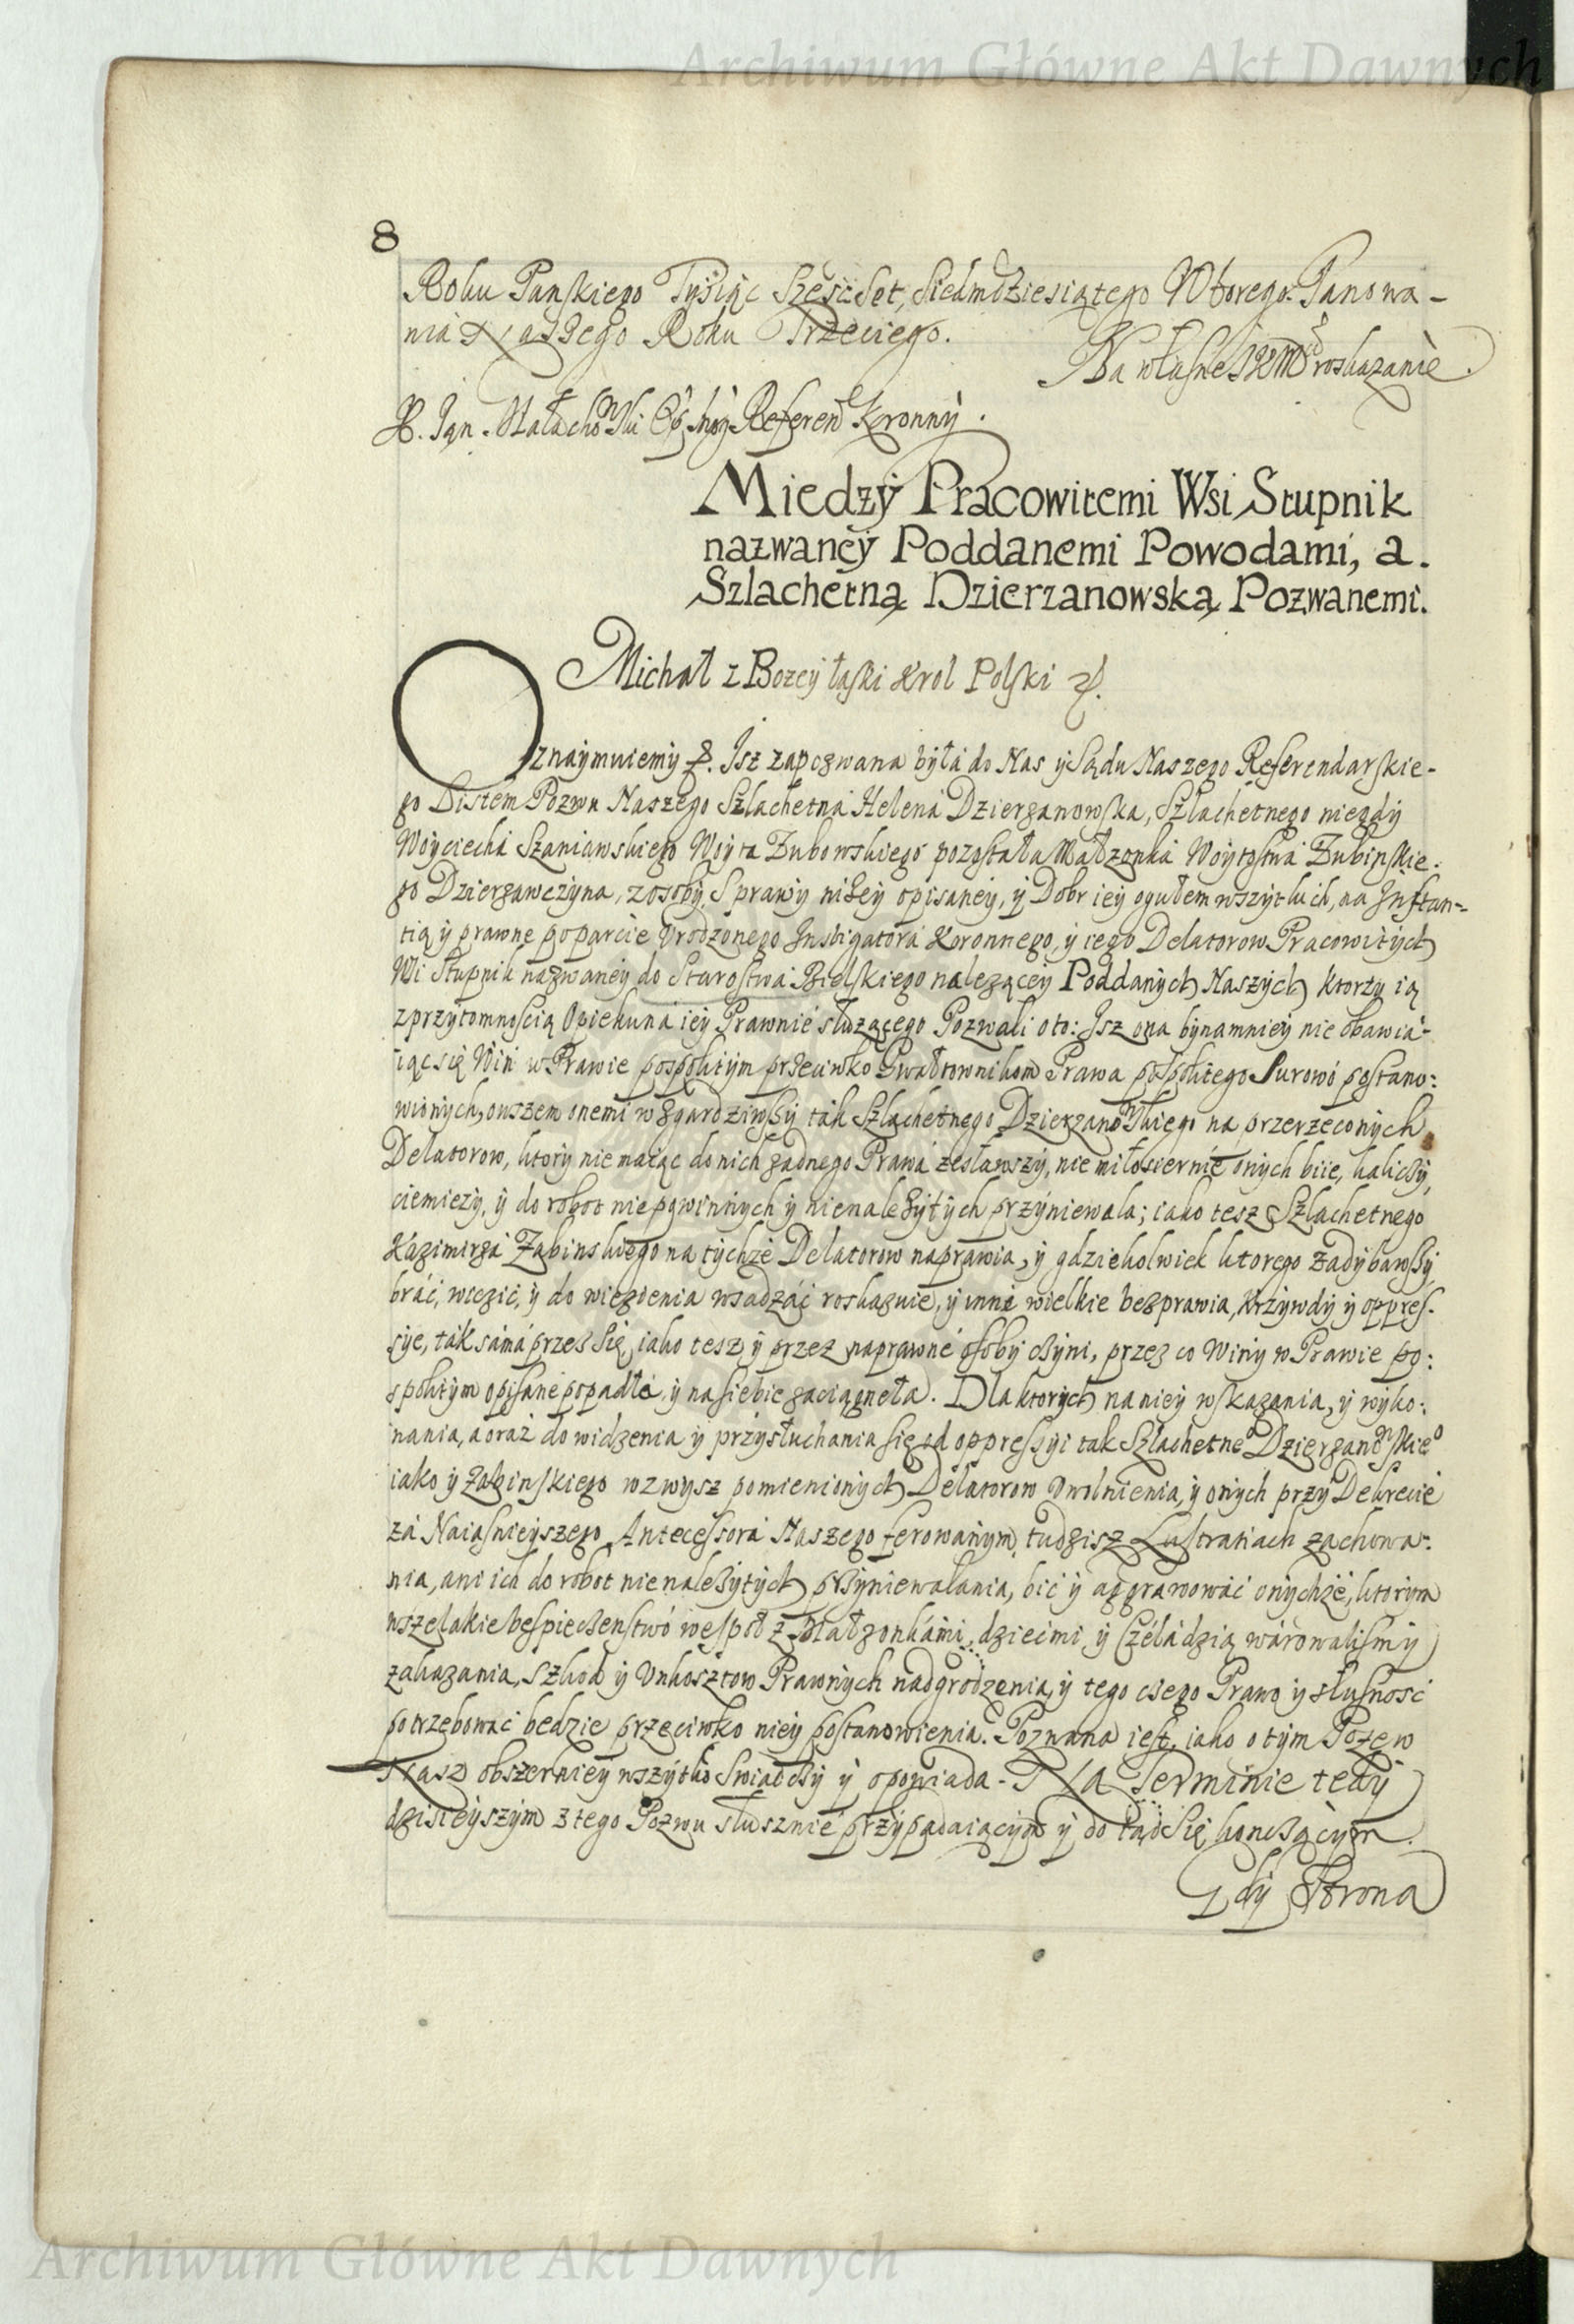 Archiwum Główne Akt Dawnych
8
Roku Panskiego Tysiąc Szescset, Siedmdziesiątego Wtorego. Panowa-
nia Naszego Roku Trzeciego.
Na własne JKMci roskazanie.
X. Jan. Małachowski Referend Kronny.
Miedzÿ Pracowitemi Wsi Stupnik
nazwaneÿ Poddanemi Powodami, a.
Szlachetną Dzierzanowską Pozwanemi.
Michał z Bozeÿ łaski Krol Polski
Oznaÿmuiemÿ. Isz zapozwana bÿła do Nas ÿ Sądu Naszego Referendarskie-
go Listem Pozwu Naszego Szlachetna Helena Dzierzanowska, Szlachetnego niegdÿ
Woÿciecha Szaniawskiego Woÿta Zubowskiego pozostała Małzonka Woÿtostwa Zubinskie:
go Dzierzawczÿna, z osobÿ, Sprawÿ nizeÿ opisaneÿ, ÿ Dobr ieÿ ogułem wszÿtkich, na Instan-
tią ÿ prawne poparcie Vrodzonego Instigatora Koronnego, ÿ iego Delatorow Pracowitÿch
Wsi Stupnik nazwaneÿ do Starostwa Bielskiego naleząceÿ Poddanÿch Naszÿch ktorzÿ ią
z przÿtomnoscią Opiekuna ieÿ Prawnie słuzącego Pozwali oto: Isz ona bÿnamnieÿ nie obawia-
iąc się Win w Prawie pospolitÿm przeciwko Gwałtownikom Prawa pospolitego Surowo postano:
wionÿch, owszem onemi wzgardziwszÿ tak Szlachetnego Dzierzanowskiego na przerzeczonÿch
Delatorow, ktorÿ nie maiąc do nich zadnego Prawa zesławszÿ, nie miłosiernie onÿch biie, kaliczÿ,
ciemiezÿ, ÿ do robot niepowinnÿch ÿ nienalezÿtÿch przÿniewala; iako tesz Szlachetnego
Kazimirza Zabinskiego na tÿchze Delatorow naprawia, ÿ gdziekolwiek ktorego zadÿbawszÿ
brać, wiezic, ÿ do wiezienia wsadzać roskazuie, ÿ inne wielkie bezprawia, Krzÿwdÿ ÿ oppres-
sÿe, tak sama przez Się, iako tesz ÿ przez naprawne osobÿ czÿni, przez co Winÿ w Prawie po:
spolitÿm opisane popadła ÿ na siebie zaciągneła. Dla ktorÿch na nieÿ wskazania, ÿ wÿko:
nania, a oraz do widzenia ÿ przÿsłuchania się od oppressÿi tak Szlachetneo Dzierzanowskieo
iako ÿ Zabinskiego wzwÿsz pomienionÿch Delatorow Vwolnienia, ÿ onÿch przÿ Dekrecie
za Naiasnieÿszego Antecessora Naszego ferowanÿm, tudzisz Lustratiach zachowa:
nia, ani ich do robot nienalezÿtÿch przÿniewalania, bić ÿ aggrawować onÿchze, ktorÿm
wszelakie bespieczenstwo wespoł z Małzonkami, dziecmi, ÿ Czeladzią warowalismÿ
zakazania, szkod ÿ Vnkosztow Prawnÿch nadgrodzenia, ÿ tego czego Prawo ÿ słusnosć
potrzebować bedzie przeciwko nieÿ postanowienia. Poznana iest, iako o tÿm Pozew
Nasz obszernieÿ wszÿtko Swiadczÿ ÿ opowiada. Na Terminie tedÿ
dzisieÿszÿm z tego Pozwu słusznie przÿpadaiącÿm ÿ do tąd Się konczącÿm
Gdÿ Strona
Archiwum Główne Akt Dawnych